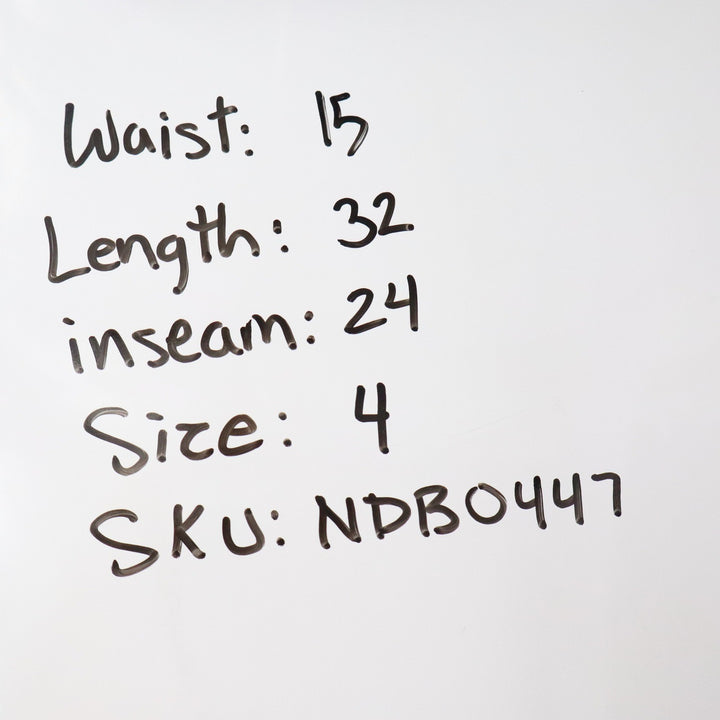 Waist: 15
Length: 32
inseam: 24
Size: 4
SKU: NDB0447